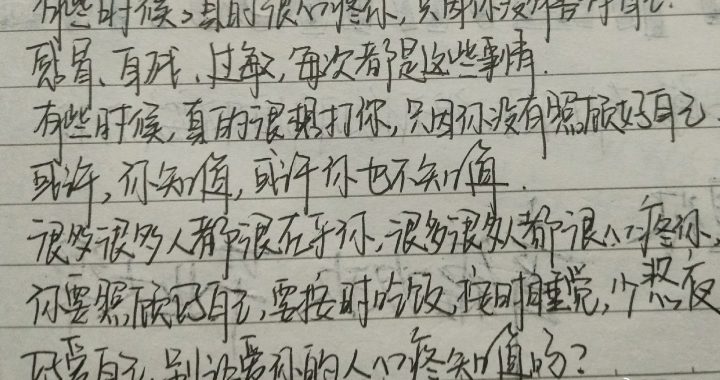 有些时候，真的很心疼你，只因你没有照顾好自己.
感冒、自残、过敏，每次都是这些事情.
有些时候，真的很想打你，只因你没有照顾好自己.
或许，你知道，或许你也不知道.
很多很多人都很在乎你，很多很多人都很心疼你.
你要照顾好自己，要按时吃饭，按时睡觉，少熬夜
好爱自己，别让爱你的人心疼知道吗？